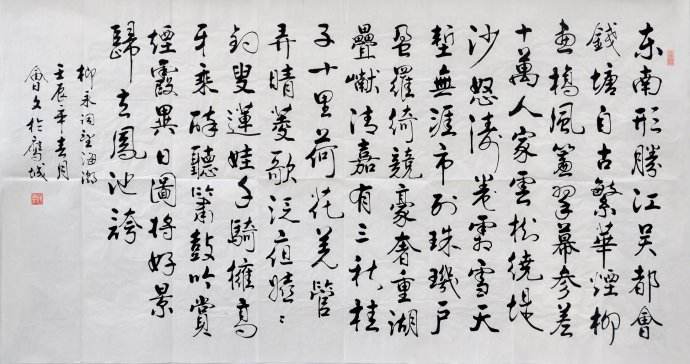 東南形勝江吳都會
錢塘自古繁華煙柳
畫橋風簾翠幕參差
十萬人家雲樹繞堤
沙怒濤卷霜雪天
塹無涯市列珠璣戶
盈羅綺競豪奢重湖
疊巘清嘉有三秋桂
子十里荷花羌管
弄晴菱歌泛夜嬉〻
釣叟蓮娃千騎擁高
牙乘醉聽簫鼓吟賞
煙霞異日圖將好景
歸去鳳池誇
柳永詞望海潮
壬辰年春月
會文於鷹城